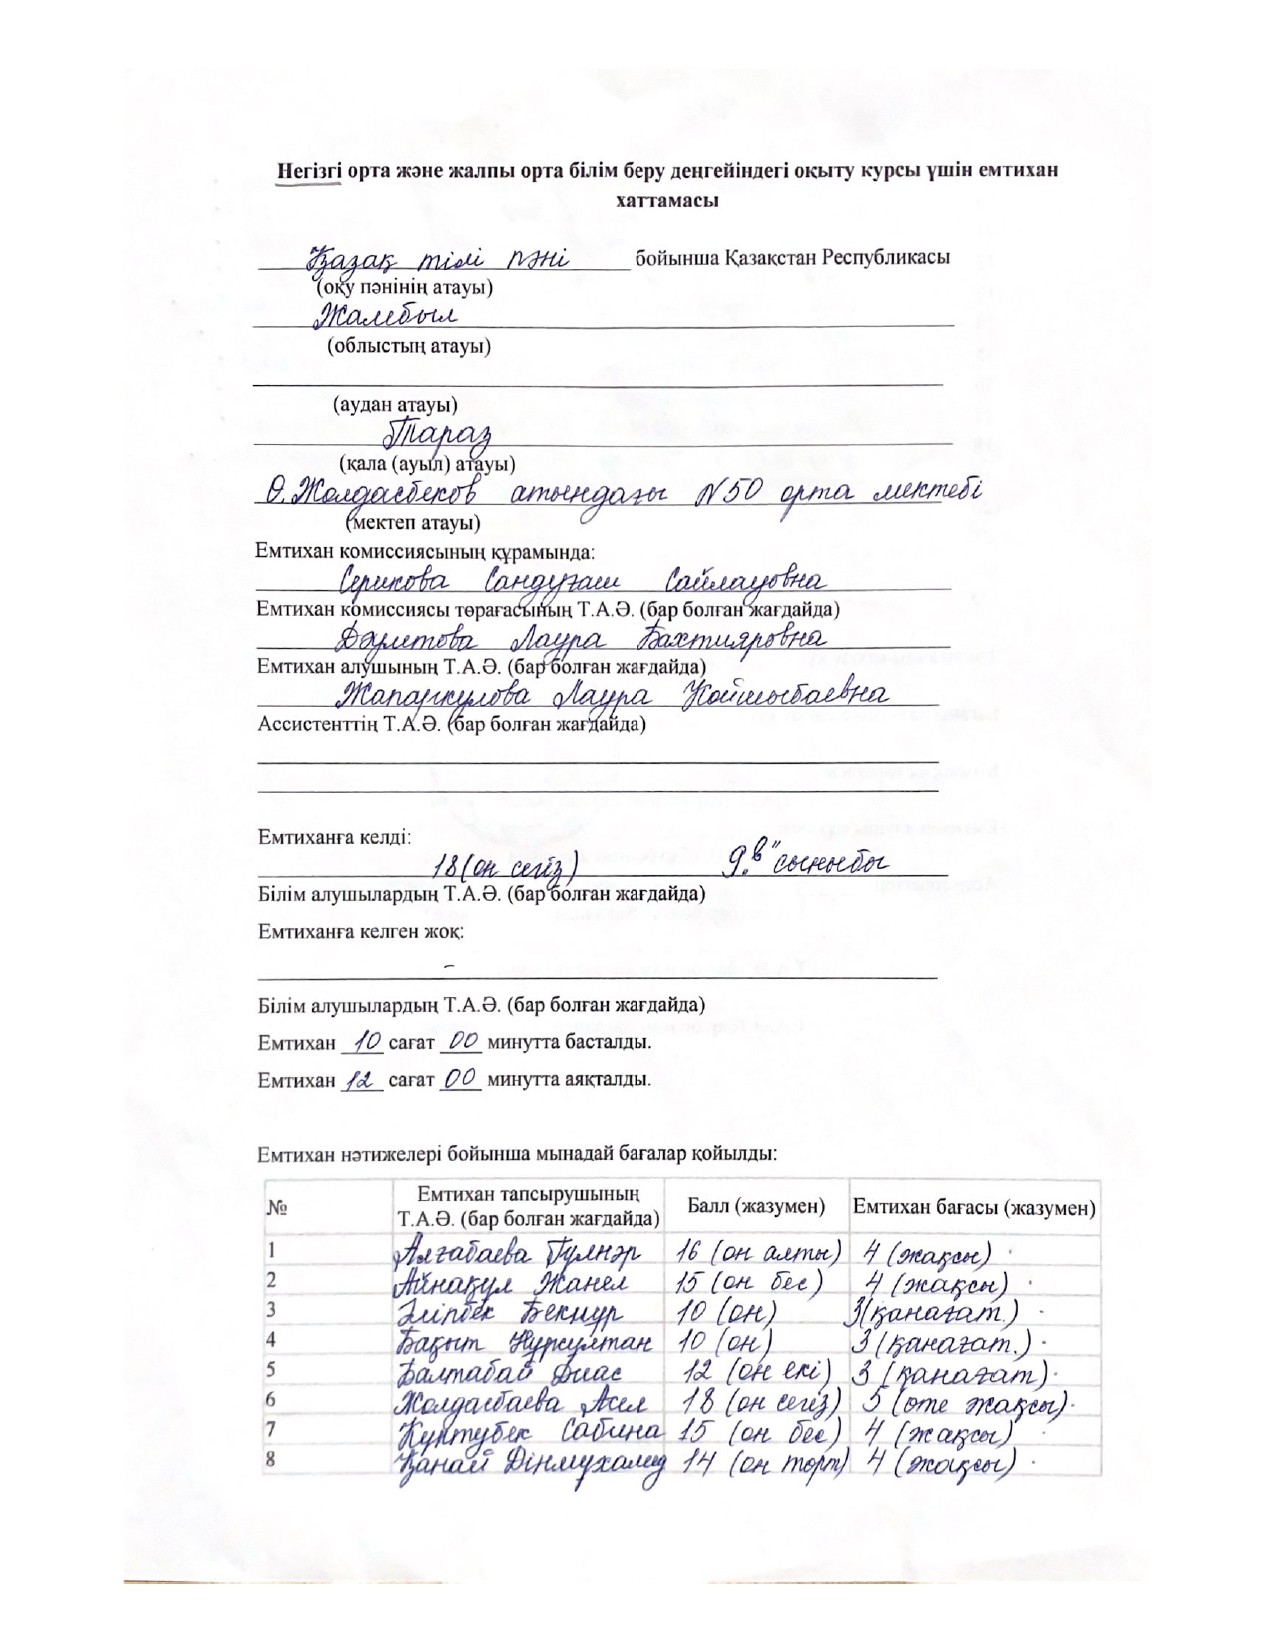 Негізгі орта және жалпы орта білім беру деңгейіндегі оқыту курсы үшін емтихан
хаттамасы
Қазақ тілі пәні бойынша Қазақстан Республикасы
(оқу пәнінің атауы)
Жамбыл
(облыстың атауы)
(аудан атауы)
Тараз
(қала (ауыл) атауы)
Ө. Жолдасбеков атындағы №50 орта мектебі
(мектеп атауы)
Емтихан комиссиясының құрамында:
Серикова Сандуғаш Сайлауовна
Емтихан комиссиясы төрағасының Т.А.Ә. (бар болған жағдайда)
Даулетова Лаура Бахтияровна
Емтихан алушының Т.А.Ә. (бар болған жағдайда)
Жапаркулова Лаура Койшыбаевна
Ассистенттің Т.А.Ә. (бар болған жағдайда)
Емтиханға келді:
18 (он сегіз) 9 "в" сыныбы
Білім алушылардың Т.А.Ә. (бар болған жағдайда)
Емтиханға келген жоқ:
–
Білім алушылардың Т.А.Ә. (бар болған жағдайда)
Емтихан 10 сағат 00 минутта басталды.
Емтихан 12 сағат 00 минутта аяқталды.
Емтихан нәтижелері бойынша мынадай бағалар қойылды:
№ Емтихан тапсырушының Т.А.Ә. (бар болған жағдайда) Балл (жазумен) Емтихан бағасы (жазумен)
1 Алғабаева Гүлнәр 16 (он алты) 4 (жақсы)
2 Айнақул Жанел 15 (он бес) 4 (жақсы)
3 Әліпбек Бекнұр 10 (он) 3 (қанағат.)
4 Бақыт Нұрсұлтан 10 (он) 3 (қанағат.)
5 Балтабай Диас 12 (он екі) 3 (қанағат)
6 Жолдасбаева Асел 18 (он сегіз) 5 (өте жақсы)
7 Күнтубек Сабина 15 (он бес) 4 (жақсы)
8 Қанай Дінмухамед 14 (он төрт) 4 (жақсы)